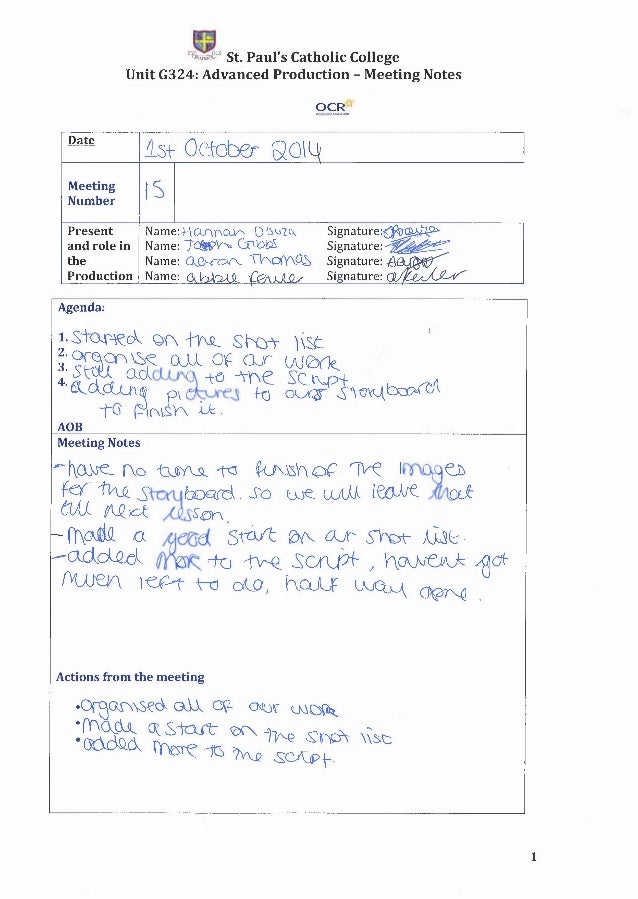 St. Paul's Catholic College
Unit G324: Advanced Production – Meeting Notes
OCR
Date
1st October 2014
Meeting
Number
15
Present
and role in
the
Production
Name: Hannah Dsuza Signature:
Name: Joseph Cribbs Signature:
Name: aaron Thomas Signature:
Name: abbie Signature:
Agenda:
1. Started on the shot list
2. organise all of ar work
3. still adding to the script
4. adding pictures to our storyboard
to finish it.
AOB
Meeting Notes
- have no time to finish of the images
for the storyboard. so we will leave that
till next lesson.
- made a good start on ar shot list.
- added more to the script, havent got
much left to do, half way done.
Actions from the meeting
• organised all of our work
• made a start on the shot list
• added more to the script.
1